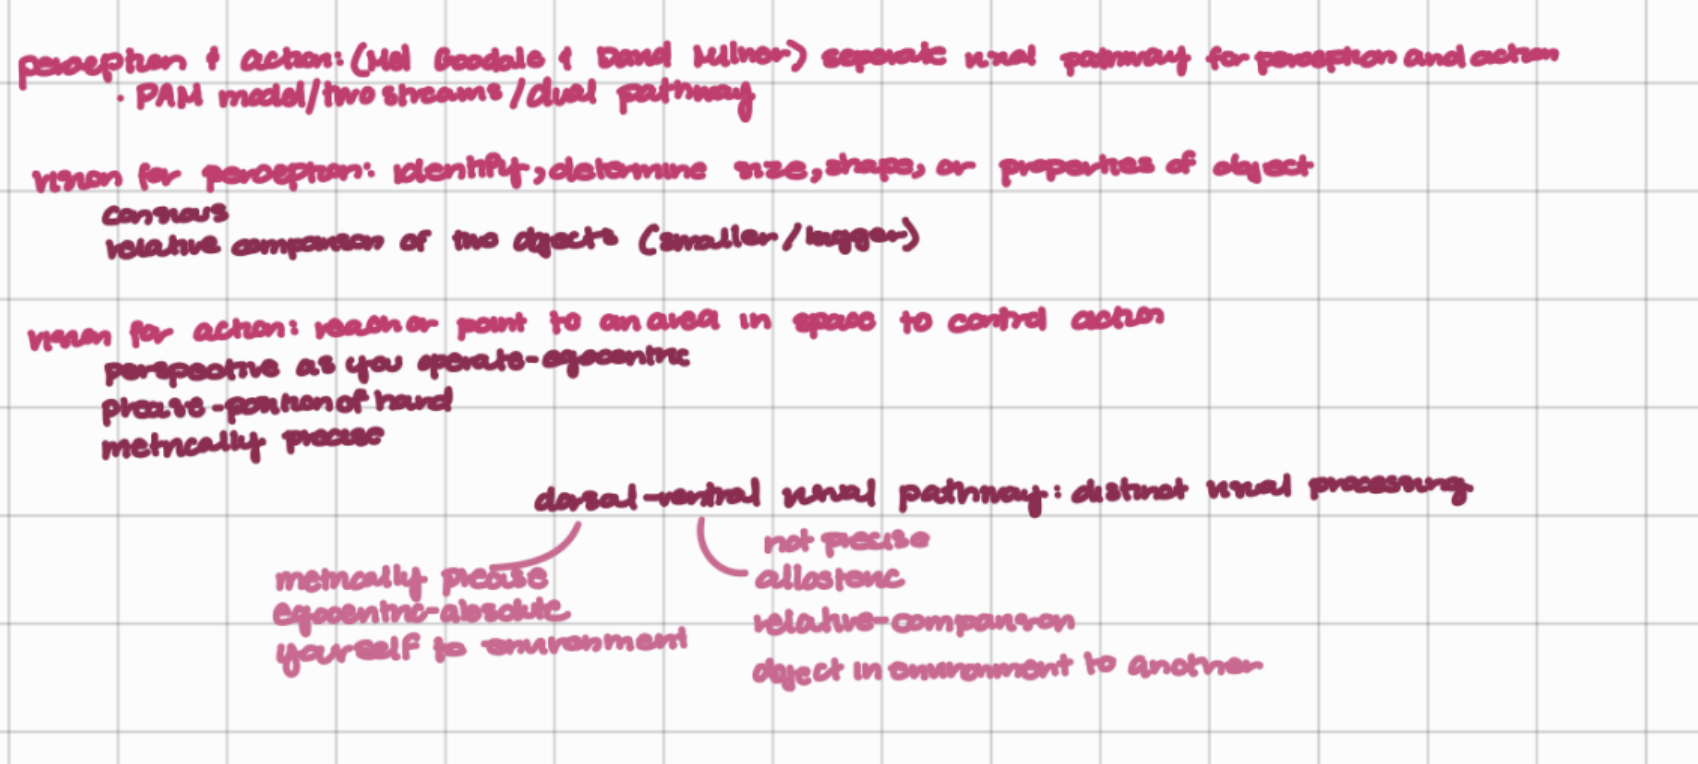 perception & action: (Mel Goodale & David Milner) separate visual pathway for perception and action
· PAM model/two streams/dual pathway
vision for perception: identify, determine size, shape, or properties of object
conscious
relative comparison of two objects (smaller/bigger)
vision for action: reach or point to an area in space to control action
perspective as you operate-egocentric
precise-position of hand
metrically precise
dorsal-ventral visual pathway: distinct visual processing
not precise
metrically precise allostenc
egocentric-absolute relative-comparison
yourself to environment object in environment to another